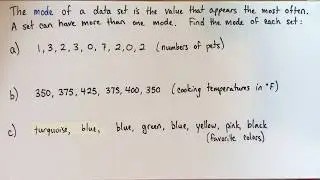 The mode of a data set is the value that appears the most often.
A set can have more than one mode. Find the mode of each set:
a) 1, 3, 2, 3, 0, 7, 2, 0, 2 (numbers of pets)
b) 350, 375, 425, 375, 400, 350 (cooking temperatures in °F)
c) turquoise, blue, blue, green, blue, yellow, pink, black
(favorite colors)